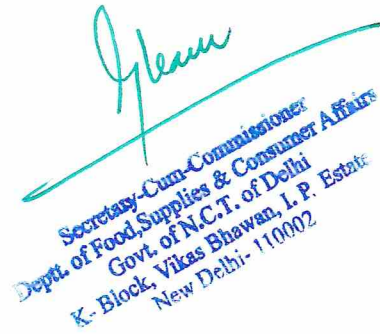 Secretary-Cum-Commissioner
Deptt. of Food,Supplies & Consumer Affairs
Govt. of N.C.T. of Delhi
K- Block, Vikas Bhawan, I. P. Estate
New Delhi- 110002